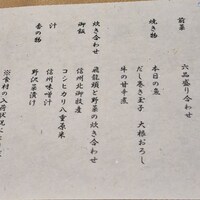 前菜 六品盛り合わせ
焼き物 本日の魚
だし巻き玉子 大根おろし
の甘辛煮
炊き合わせ 飛龍頭と野菜の炊き合わせ
御飯 信州北御牧産
コシヒカリ八重原米
汁 信州味噌汁
香の物 野沢菜漬け
※食材の入荷状況により